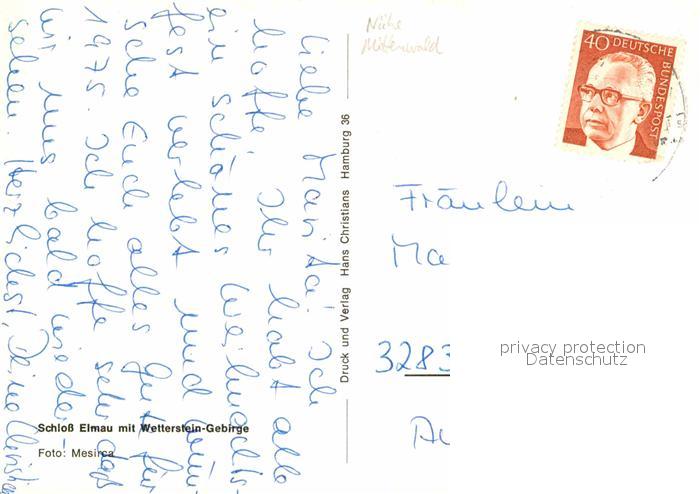 Liebe Marita! Ich
hoffe, Ihr habt alle
ein schönes Weihnachts-
fest verlebt und wün-
sche Euch alles Gute für
1975. Ich hoffe sehr, daß
wir uns bald wieder-
sehen. Herzlichst, Deine
Nähe
Mittenwald
40 DEUTSCHE
BUNDESPOST
Fräulein
Ma
3283
Druck und Verlag Hans Christians Hamburg 36
privacy protection
Datenschutz
Schloß Elmau mit Wetterstein-Gebirge
Foto: Mesirca